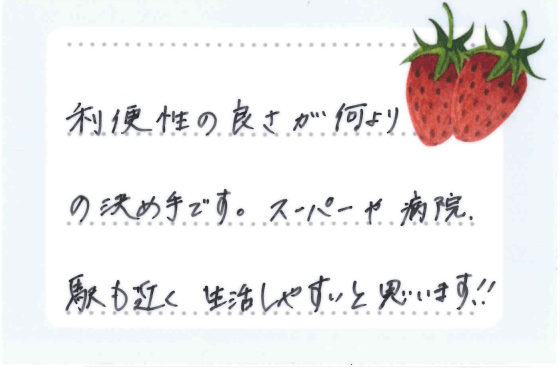 利便性の良さが何より
の決め手です。スーパーや病院,
駅も近く 生活しやすいと思います!!